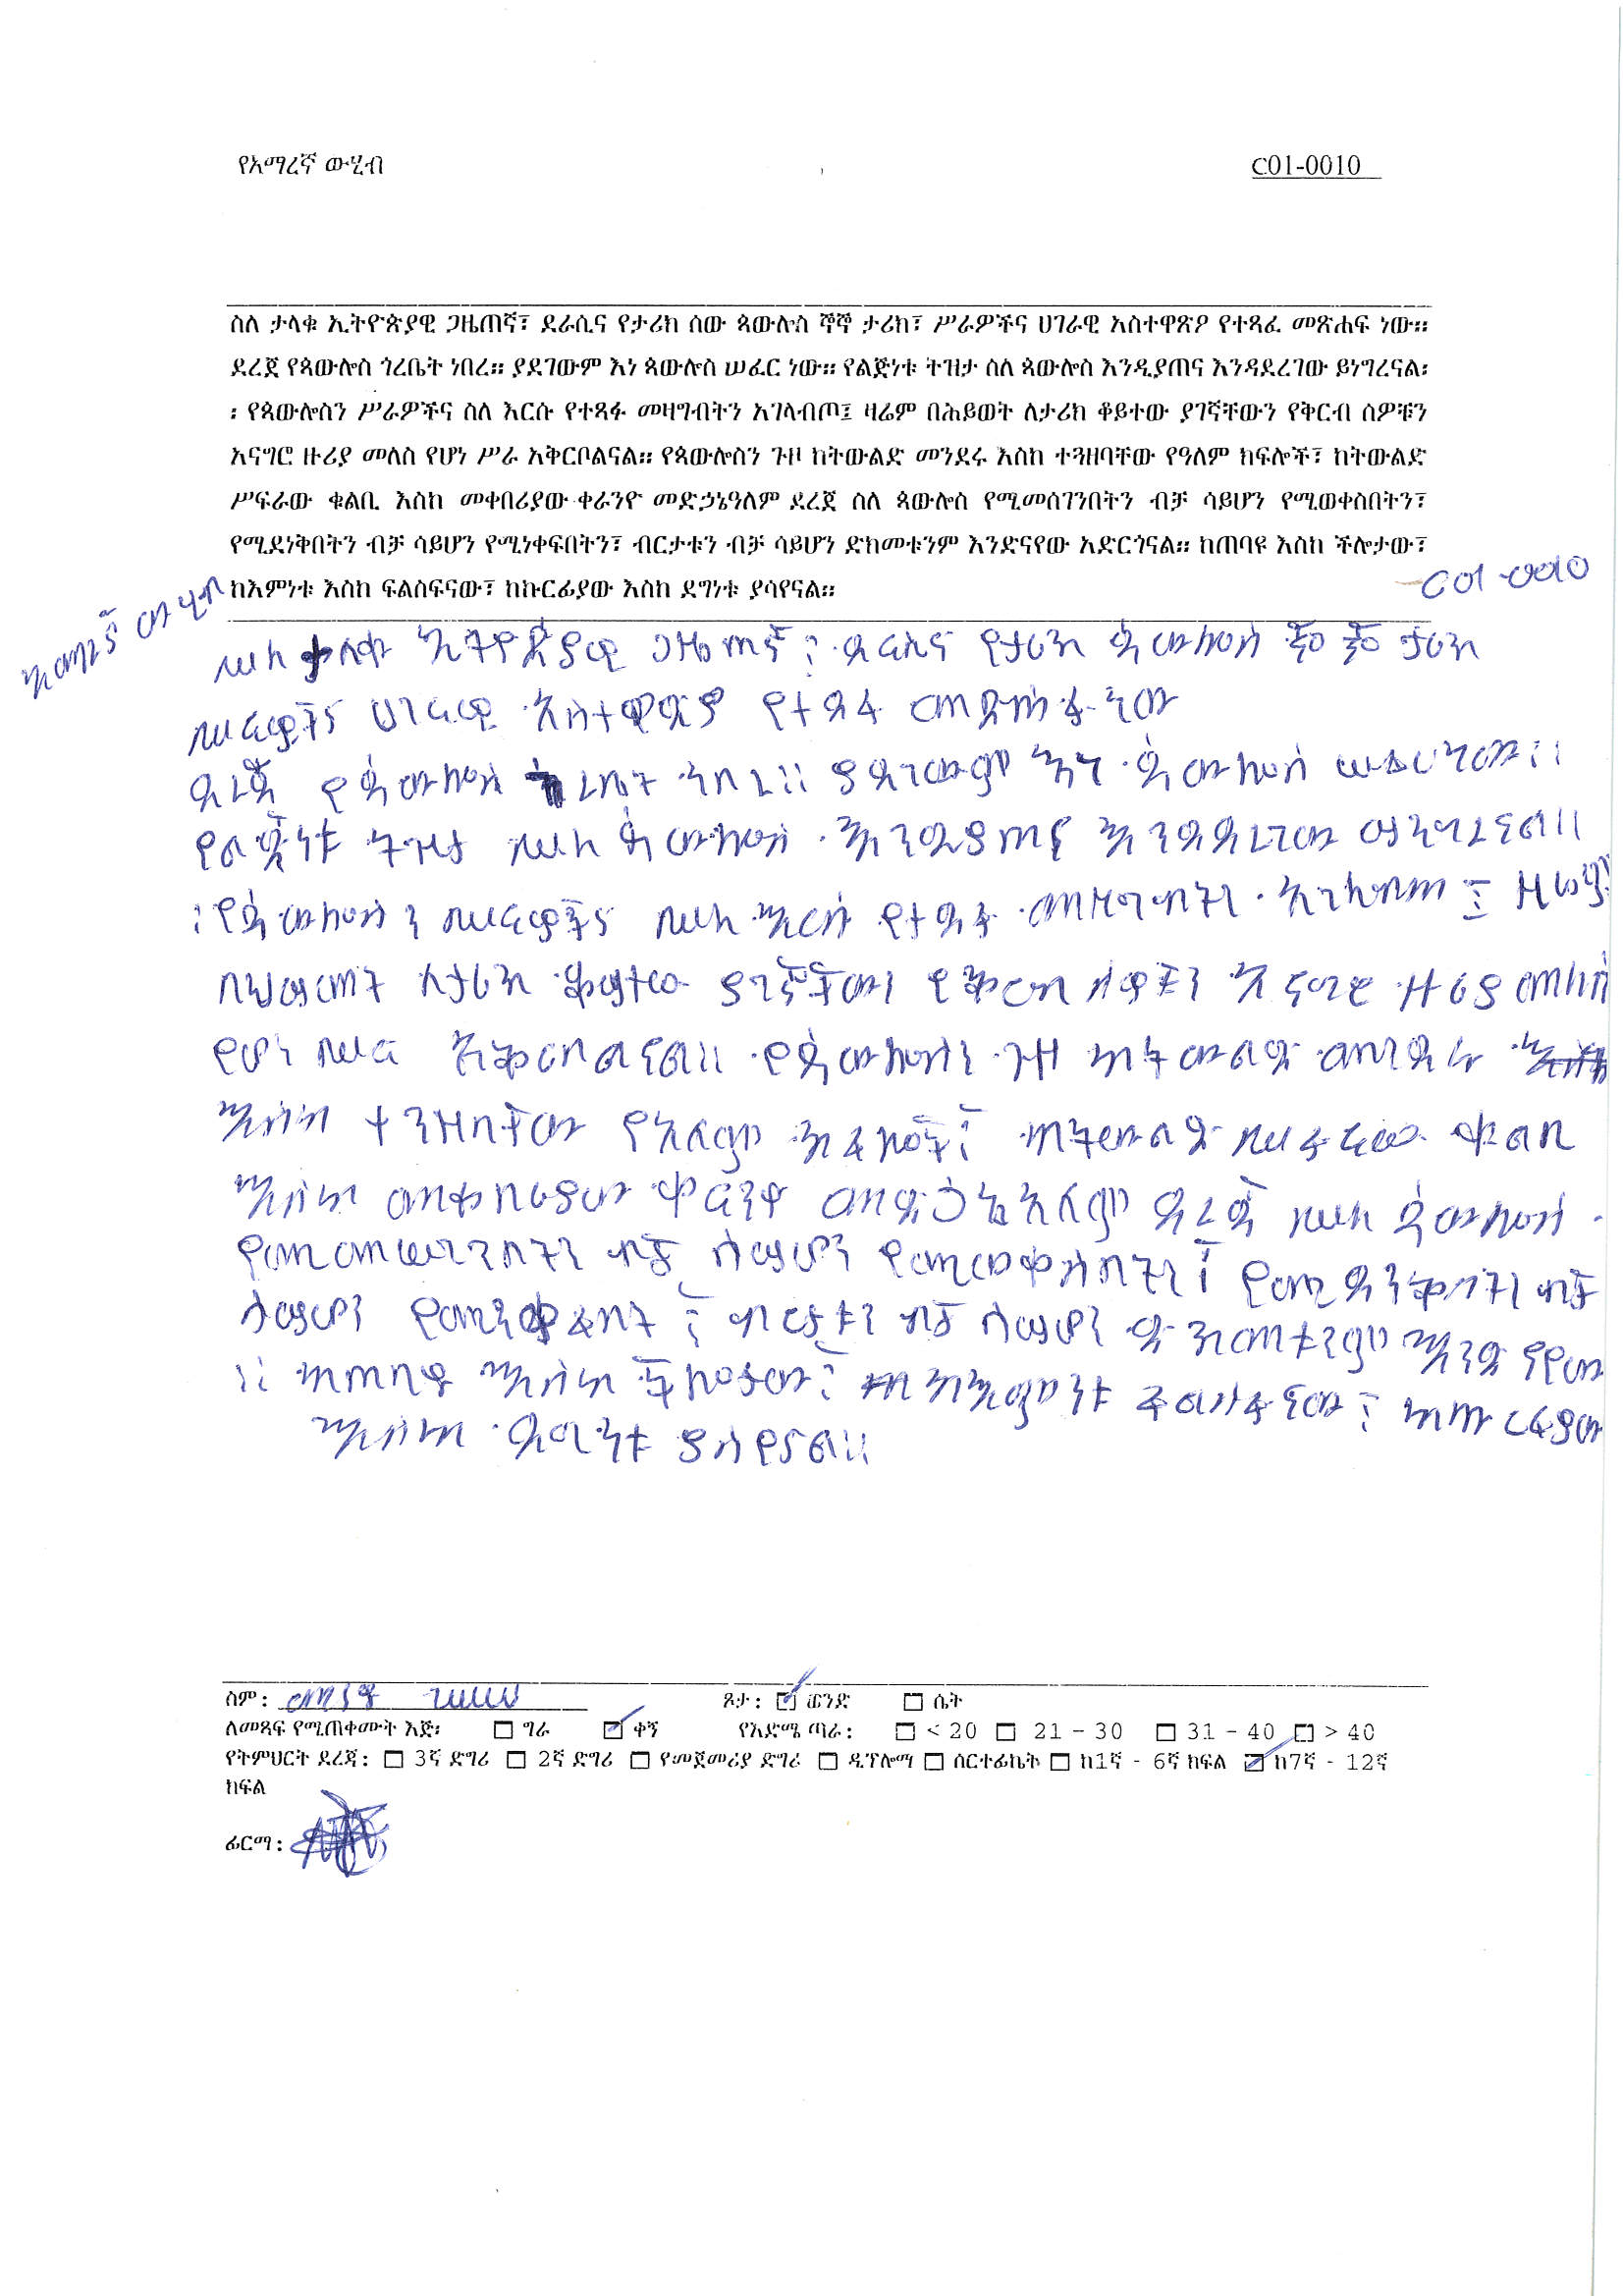 የአማረኛ ውሂብ C01-0010
ስለ ታላቁ ኢትዮጵያዊ ጋዜጠኛ፣ ደራሲና የታሪክ ሰው ጳውሎስ ኞኞ ታሪክ፣ ሥራዎችና ሀገራዊ አስተዋጽዖ የተጻፈ መጽሐፍ ነው።
ደረጀ የጳውሎስ ጎረቤት ነበረ። ያደገውም እነ ጳውሎስ ሠፈር ነው። የልጅነቱ ትዝታ ስለ ጳውሎስ እንዲያጠና እንዳደረገው ይነግረናል፡
፡ የጳውሎስን ሥራዎችና ስለ እርሱ የተጻፉ መዛግብትን አገላብጦ፤ ዛሬም በሕይወት ለታሪክ ቆይተው ያገኛቸውን የቅርብ ሰዎቹን
አናግሮ ዙሪያ መለስ የሆነ ሥራ አቅርቦልናል። የጳውሎስን ጉዞ ከትውልድ መንደሩ እስከ ተጓዘባቸው የዓለም ክፍሎች፣ ከትውልድ
ሥፍራው ቁልቢ እስከ መቀበሪያው ቀራንዮ መድኃኔዓለም ደረጀ ስለ ጳውሎስ የሚመሰገንበትን ብቻ ሳይሆን የሚወቀስበትን፣
የሚደነቅበትን ብቻ ሳይሆን የሚነቀፍበትን፣ ብርታቱን ብቻ ሳይሆን ድክመቱንም እንድናየው አድርጎናል። ከጠባዩ እስከ ችሎታው፣
ከእምነቱ እስከ ፍልስፍናው፣ ከኩርፊያው እስከ ደግነቱ ያሳየናል።
C01-0010
ሠለ ታላቁ ኢትዮጵያዊ ጋዜጠኛ፣ ደራሲና የታሪክ ጳውሎስ ኞኞ ታሪክ
ሠራዎችና ሀገራዊ አስተዋጽያ የተጻፈ መጽሐፍ ነው
ደረጀ የጳውሎስ ጎረቤት ነበረ። ያደገውም እነ ጳውሎስ ሠፈር ነው።
የልጅነቱ ትዝታ ሠለ ጳውሎስ እንዲያጠና እንዳደረገው ይነግረናል።
፡የጳውሎስን ሠራዎችና ሠለ እርሱ የተጻፉ መዛግብትን አገላብጦ ፤ ዛሬም
በህይወት ለታሪክ ቆይተው ያገኛቸውን የቅርብ ሰዎቹን አናግሮ ዙሪያ መለስ
የሆነ ሠራ አቅርቦልናል። የጳውሎስን ጉዞ ከትውልድ መንደሩ
እስከ ተጓዘባቸው የአለም ክፍሎች፣ ከትውልድ ሠፍራው ቁልቢ
እስከ መቀበሪያው ቀራንዮ መድኃኔአለም ደረጀ ሠለ ጳውሎስ
የሚመሠገንበትን ብቻ ሳይሆን የሚወቀስበትን፣ የሚደነቅበትን ብቻ
ሳይሆን የሚነቀፍበት ፣ ብርታቱን ብቻ ሳይሆን ድክመቱንም እንድናየው
።ከጠባዩ እስከ ችሎታው፣ ከእምነቱ ፍልስፍናው፣ ከኩርፊያው
እስከ ደግነቱ ያሳየናል።
ስም:
ጾታ: ወንድ ሴት
ለመጻፍ የሚጠቀሙት እጅ፡ ግራ ቀኝ የእድሜ ጣራ: < 20 21 - 30 31 - 40 > 40
የትምህርት ደረጃ: 3ኛ ድግሪ 2ኛ ድግሪ የመጀመሪያ ድግሪ ዲፕሎማ ሰርተፊኬት ከ1ኛ - 6ኛ ክፍል ከ7ኛ - 12ኛ
ክፍል
ፊርማ: